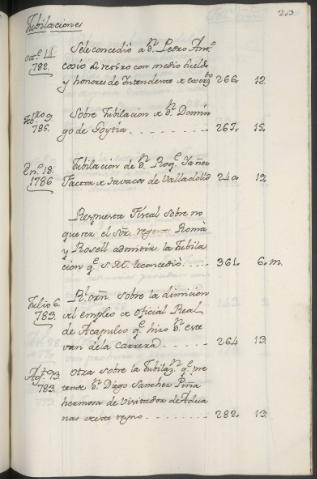 213
Jubilaciones
Oct.e 11 Se le concedió a D.n Pedro Ant.o
782. cosio el retiro con medio sueldo
y honores de Intendente de exerc.to 266. 12.
Feb.ro 9 Sobre Jubilacion de D.n Domin
785. go de Goytia - - - - - - 267. 15.
En.o 18. Jubilacion de D.n
1786 Factor de tavacos de Valladolid 240. 12
Respuesta Fiscal sobre no
querer el Sor. Romà
y Rosell admitir la Jubila
cion q.e S. M. le concedió - - - 361. 6. m.
Julio 6 R.l orn. sobre la dimicion
783. del empleo de oficial Real
de Acapulco q.e hizo D.n Este
van de la Carrera - - - - 264 13.
Ag.to 93 Otra sobre la Jubilaz.n q.e pre
783. tende D.n Diego Sanchez Piña
hermosa de Vicitador de Adua
nas de este reyno - - - - 282. 13.